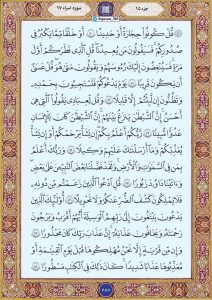 جزء ۱۵
سوره اسراء ۱۷
قُلْ كُونُوا حِجَارَةً أَوْ حَدِيدًا ۝ أَوْ خَلْقًا مِمَّا يَكْبُرُ فِي
صُدُورِكُمْ فَسَيَقُولُونَ مَنْ يُعِيدُنَا قُلِ الَّذِي فَطَرَكُمْ أَوَّلَ
مَرَّةٍ فَسَيُنْغِضُونَ إِلَيْكَ رُءُوسَهُمْ وَيَقُولُونَ مَتَىٰ هُوَ قُلْ عَسَىٰ
أَنْ يَكُونَ قَرِيبًا ۝ يَوْمَ يَدْعُوكُمْ فَتَسْتَجِيبُونَ بِحَمْدِهِ
وَتَظُنُّونَ إِنْ لَبِثْتُمْ إِلَّا قَلِيلًا ۝ وَقُلْ لِعِبَادِي يَقُولُوا الَّتِي هِيَ
أَحْسَنُ إِنَّ الشَّيْطَانَ يَنْزَغُ بَيْنَهُمْ إِنَّ الشَّيْطَانَ كَانَ لِلْإِنْسَانِ
عَدُوًّا مُبِينًا ۝ رَبُّكُمْ أَعْلَمُ بِكُمْ إِنْ يَشَأْ يَرْحَمْكُمْ أَوْ إِنْ يَشَأْ
يُعَذِّبْكُمْ وَمَا أَرْسَلْنَاكَ عَلَيْهِمْ وَكِيلًا ۝ وَرَبُّكَ أَعْلَمُ
بِمَنْ فِي السَّمَاوَاتِ وَالْأَرْضِ وَلَقَدْ فَضَّلْنَا بَعْضَ النَّبِيِّينَ عَلَىٰ بَعْضٍ
وَآتَيْنَا دَاوُودَ زَبُورًا ۝ قُلِ ادْعُوا الَّذِينَ زَعَمْتُمْ مِنْ دُونِهِ
فَلَا يَمْلِكُونَ كَشْفَ الضُّرِّ عَنْكُمْ وَلَا تَحْوِيلًا ۝ أُولَٰئِكَ الَّذِينَ
يَدْعُونَ يَبْتَغُونَ إِلَىٰ رَبِّهِمُ الْوَسِيلَةَ أَيُّهُمْ أَقْرَبُ وَيَرْجُونَ
رَحْمَتَهُ وَيَخَافُونَ عَذَابَهُ إِنَّ عَذَابَ رَبِّكَ كَانَ مَحْذُورًا ۝
وَإِنْ مِنْ قَرْيَةٍ إِلَّا نَحْنُ مُهْلِكُوهَا قَبْلَ يَوْمِ الْقِيَامَةِ أَوْ
مُعَذِّبُوهَا عَذَابًا شَدِيدًا كَانَ ذَٰلِكَ فِي الْكِتَابِ مَسْطُورًا ۝
۲۸۷